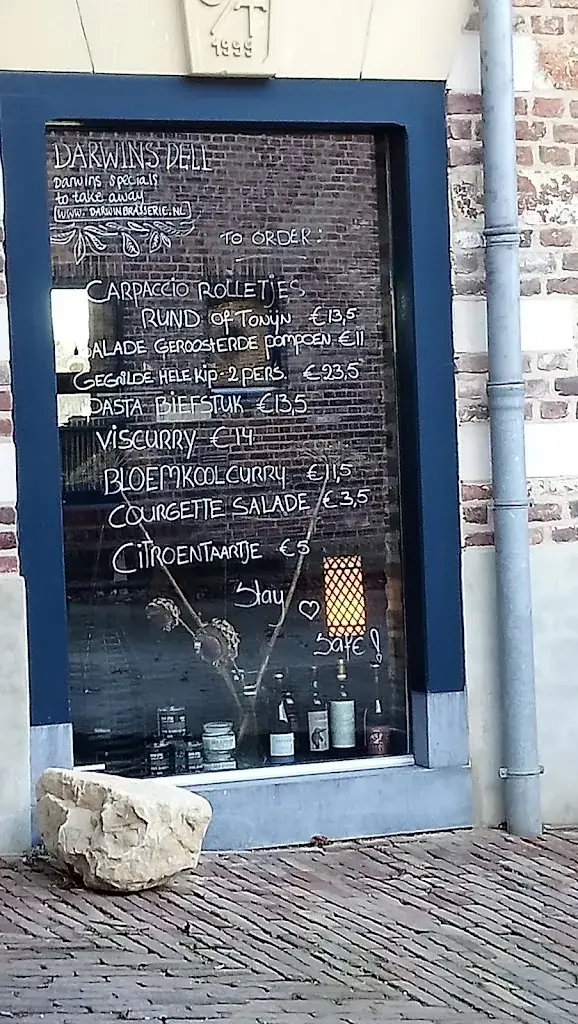 C/T
1999
DARWINS DELI
Darwins specials
to take away
WWW.DARWINBRASSERIE.NL
TO ORDER:
CARPACCIO ROLLETJES
RUND OF TONIJN €13,5
SALADE GEROOSTERDE POMPOEN €11
GEGRILDE HELE KIP - 2 PERS. €23,5
PASTA BIEFSTUK €13,5
VISCURRY €14
BLOEMKOOLCURRY €11,5
COURGETTE SALADE €3,5
CITROENTAARTJE €5
Stay
SAFE!